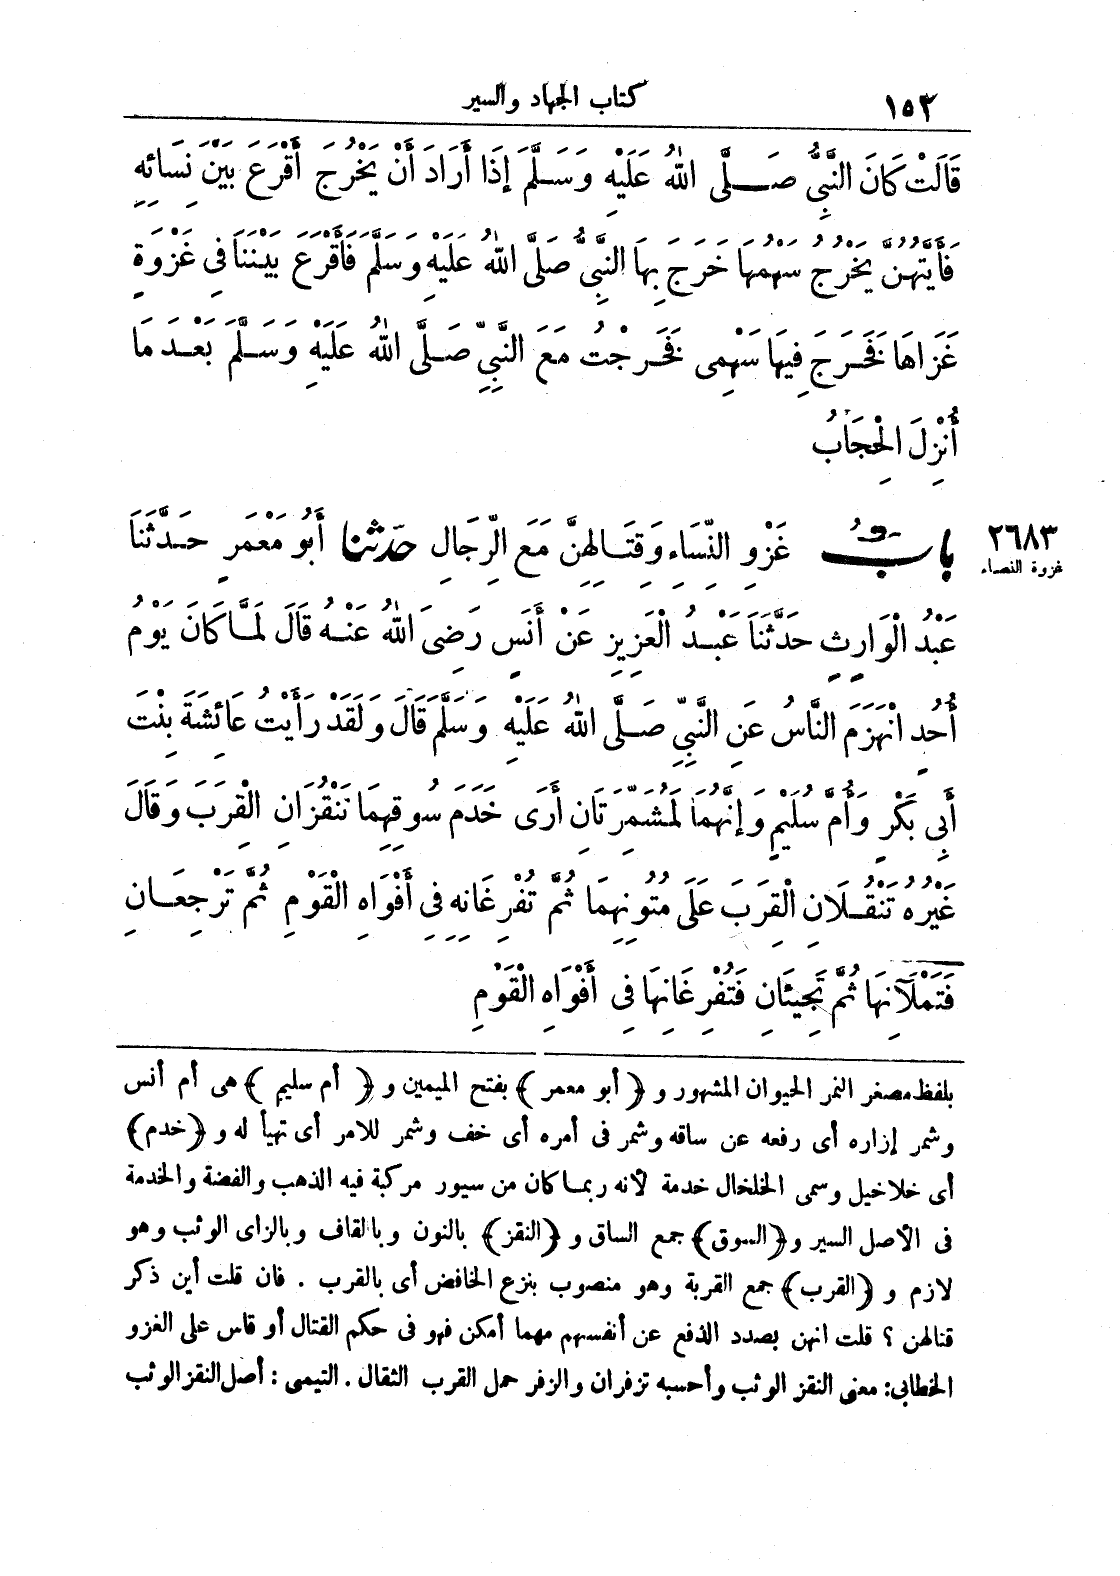 ١٥٣ كتاب الجهاد والسير
قَالَتْ كَانَ النَّبِيُّ صَلَّى اللهُ عَلَيْهِ وَسَلَّمَ إِذَا أَرَادَ أَنْ يَخْرُجَ أَقْرَعَ بَيْنَ نِسَائِهِ
فَأَيَّتُهُنَّ يَخْرُجُ سَهْمُهَا خَرَجَ بِهَا النَّبِيُّ صَلَّى اللهُ عَلَيْهِ وَسَلَّمَ فَأَقْرَعَ بَيْنَنَا فِى غَزْوَةٍ
غَزَاهَا فَخَرَجَ فِيهَا سَهْمِى فَخَرَجْتُ مَعَ النَّبِيِّ صَلَّى اللهُ عَلَيْهِ وَسَلَّمَ بَعْدَ مَا
أُنْزِلَ الْحِجَابُ
٢٦٨٣
غزوة النساء
بَابُ غَزْوِ النِّسَاءِ وَقِتَالِهِنَّ مَعَ الرِّجَالِ حَدَّثَنَا أَبُو مَعْمَرٍ حَدَّثَنَا
عَبْدُ الْوَارِثِ حَدَّثَنَا عَبْدُ الْعَزِيزِ عَنْ أَنَسٍ رَضِىَ اللهُ عَنْهُ قَالَ لَمَّا كَانَ يَوْمُ
أُحُدٍ انْهَزَمَ النَّاسُ عَنِ النَّبِيِّ صَلَّى اللهُ عَلَيْهِ وَسَلَّمَ قَالَ وَلَقَدْ رَأَيْتُ عَائِشَةَ بِنْتَ
أَبِى بَكْرٍ وَأُمَّ سُلَيْمٍ وَإِنَّهُمَا لَمُشَمِّرَتَانِ أَرَى خَدَمَ سُوقِهِمَا تَنْقُزَانِ الْقِرَبَ وَقَالَ
غَيْرُهُ تَنْقُلَانِ الْقِرَبَ عَلَى مُتُونِهِمَا ثُمَّ تُفْرِغَانِهِ فِى أَفْوَاهِ الْقَوْمِ ثُمَّ تَرْجِعَانِ
فَتَمْلَآنِهَا ثُمَّ تَجِيئَانِ فَتُفْرِغَانِهَا فِى أَفْوَاهِ الْقَوْمِ
بلفظ مصغر النمر الحيوان المشهور و ﴿أبو معمر﴾ بفتح الميمين و ﴿أم سليم﴾ هى أم أنس
وشمر إزاره أى رفعه عن ساقه وشمر فى أمره أى خف وشمر للامر أى تهيأ له و ﴿خدم﴾
أى خلاخيل وسمى الخلخال خدمة لأنه ربما كان من سيور مركبة فيه الذهب والفضة والخدمة
فى الأصل السير و ﴿السوق﴾ جمع الساق و ﴿النقز﴾ بالنون وبالقاف وبالزاى الوثب وهو
لازم و ﴿القرب﴾ جمع القربة وهو منصوب بنزع الخافض أى بالقرب . فان قلت أين ذكر
قتالهن ؟ قلت انهن بصدد الدفع عن أنفسهم مهما أمكن فهو فى حكم القتال أو قاس على الغزو
الخطابى: معنى النقز الوثب وأحسبه تزفران والزفر حمل القرب الثقال . التيمى : أصل النقز الوثب